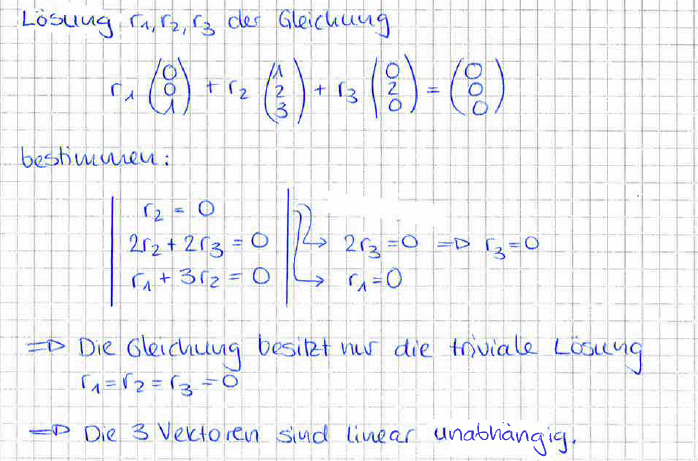 Lösung r₁, r₂, r₃ der Gleichung
r₁ (0 0 1) + r₂ (1 2 3) + r₃ (0 2 0) = (0 0 0)
bestimmen:
| r₂ = 0 |
| 2r₂ + 2r₃ = 0 | → 2r₃ = 0 ⇒ r₃ = 0
| r₁ + 3r₂ = 0 | → r₁ = 0
⇒ Die Gleichung besitzt nur die triviale Lösung
r₁ = r₂ = r₃ = 0
⇒ Die 3 Vektoren sind linear unabhängig.